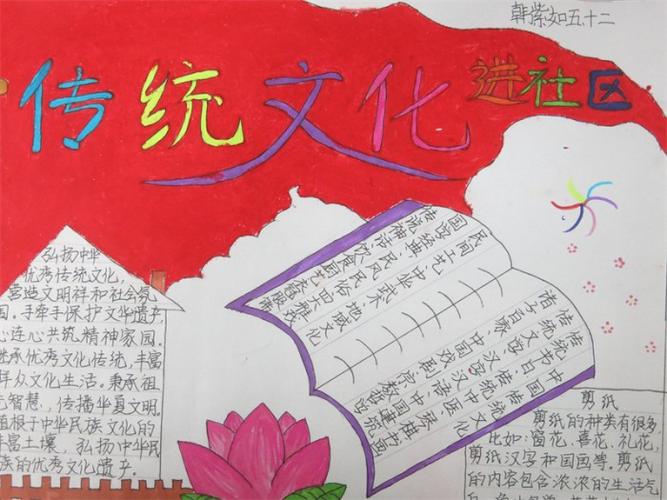 韩紫如五十二
传统文化进社区
弘扬中华
优秀传统文化,
营造文明祥和社会氛
围。手牵手保护文华遗产
心连心共筑精神家园。
继承优秀文化传统,丰富
群众文化生活。秉承祖
先智慧、传播华夏文明。
植根于中华民族文化的
丰富土壤,弘扬中华民
族的优秀文化遗产。
民间工艺、中华武术、地域文化
国学经典、民风民俗、四大雅戏
传说神话、饮食厨艺、
传统节日、传统中医、琴棋
传统文学、汉字汉语、中国建筑
诸子百家、中国戏剧、
剪纸
剪纸的种类有很多
比如:窗花、喜花、礼花,
剪纸汉字和国画等。剪纸
的内容包含浓浓的生活气